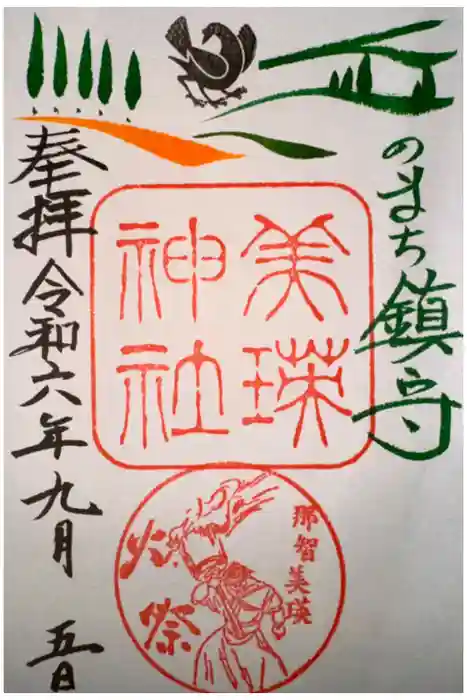 丘のまち鎮守
美瑛
神社
那智美瑛
火祭
奉拝 令和六年九月 五日